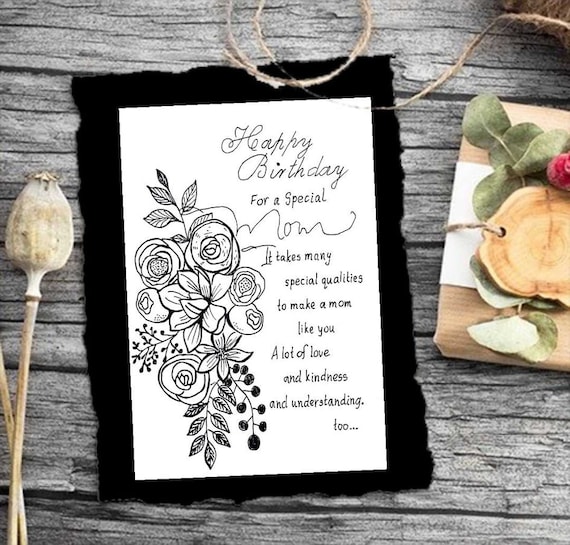 Happy
Birthday
For a Special
Mom
It takes many
special qualities
to make a mom
like you
A lot of love
and kindness
and understanding.
too...